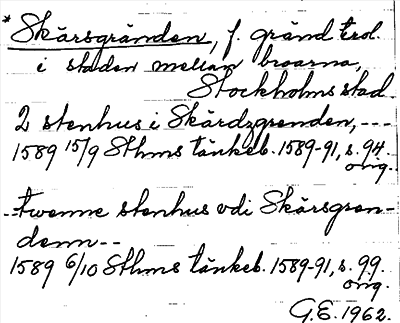 *Skärsgränden, f. gränd trol.
i staden mellan broarna,
Stockholms stad.
2 stenhus i Skärdzgrenden, ---
1589 15/9 Sthms tänkeb. 1589-91, s. 94.
orig.
- twenne stenhus vdi Skärsgren-
denn --
1589 6/10 Sthms tänkeb. 1589-91, s. 99.
orig.
G.E. 1962.